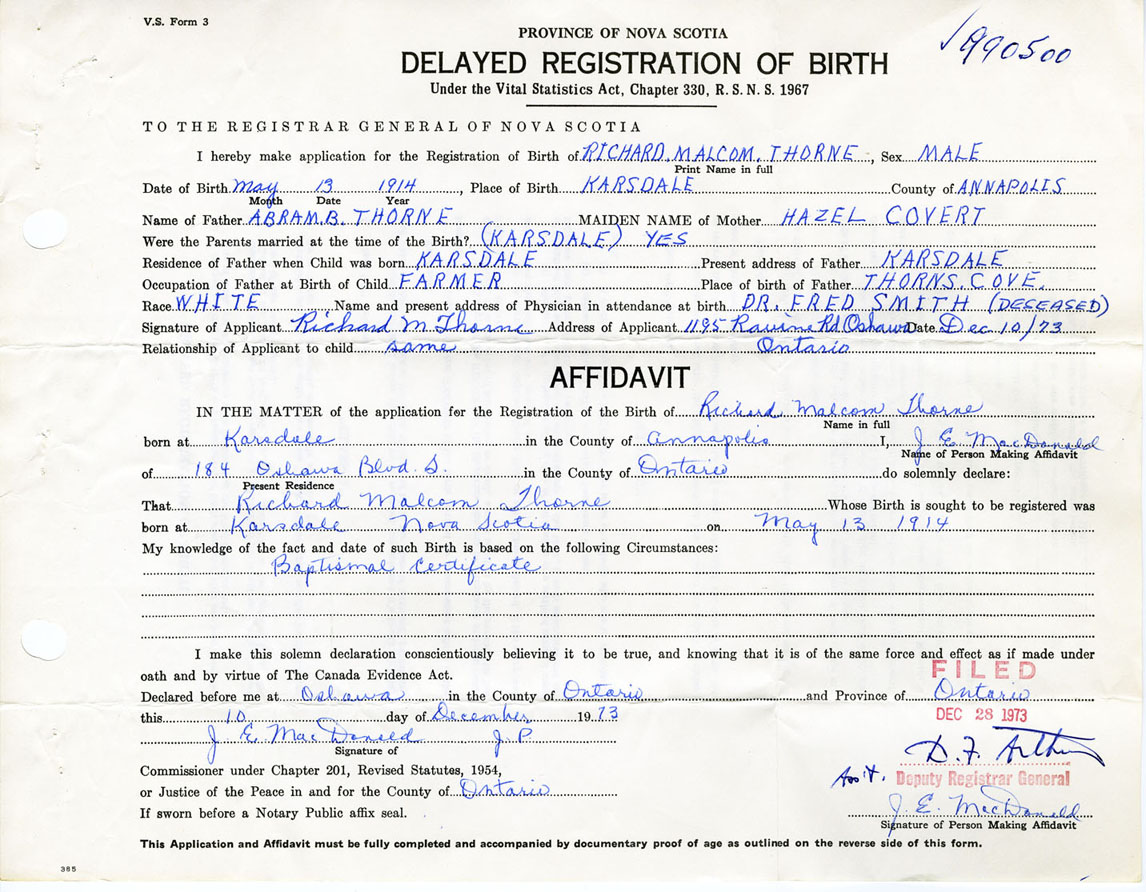 V.S. Form 3
PROVINCE OF NOVA SCOTIA
990500
DELAYED REGISTRATION OF BIRTH
Under the Vital Statistics Act, Chapter 330, R.S.N.S. 1967
TO THE REGISTRAR GENERAL OF NOVA SCOTIA
I hereby make application for the Registration of Birth of RICHARD. MALCOM. THORNE, Sex MALE
Print Name in full
Date of Birth May 13 1914, Place of Birth KARSDALE County of ANNAPOLIS
Month Date Year
Name of Father ABRAM.B. THORNE MAIDEN NAME of Mother HAZEL COVERT
Were the Parents married at the time of the Birth? (KARSDALE) YES
Residence of Father when Child was born KARSDALE Present address of Father KARSDALE
Occupation of Father at Birth of Child FARMER Place of birth of Father THORNS. COVE.
Race WHITE Name and present address of Physician in attendance at birth DR. FRED SMITH (DESEASED)
Signature of Applicant Richard M. Thorne Address of Applicant 1195 Ravine Rd Oshawa Date Dec 10/73
Relationship of Applicant to child same Ontario
AFFIDAVIT
IN THE MATTER of the application for the Registration of the Birth of Richard Malcom Thorne
Name in full
born at Karsdale in the County of Annapolis I, J E MacDonald
Name of Person Making Affidavit
of 184 Oshawa Blvd. S. in the County of Ontario do solemnly declare:
Present Residence
That Richard Malcom Thorne Whose Birth is sought to be registered was
born at Karsdale Nova Scotia on May 13 1914
My knowledge of the fact and date of such Birth is based on the following Circumstances:
Baptismal Certificate
I make this solemn declaration conscientiously believing it to be true, and knowing that it is of the same force and effect as if made under
oath and by virtue of The Canada Evidence Act.
FILED
Declared before me at Oshawa in the County of Ontario and Province of Ontario
this 10 day of December 1973
DEC 28 1973
J E MacDonald J P
Signature of
D. F. Arthur
Commissioner under Chapter 201, Revised Statutes, 1954,
Ass't. Deputy Registrar General
or Justice of the Peace in and for the County of Ontario
J. E. MacDonald
If sworn before a Notary Public affix seal.
Signature of Person Making Affidavit
This Application and Affidavit must be fully completed and accompanied by documentary proof of age as outlined on the reverse side of this form.
385